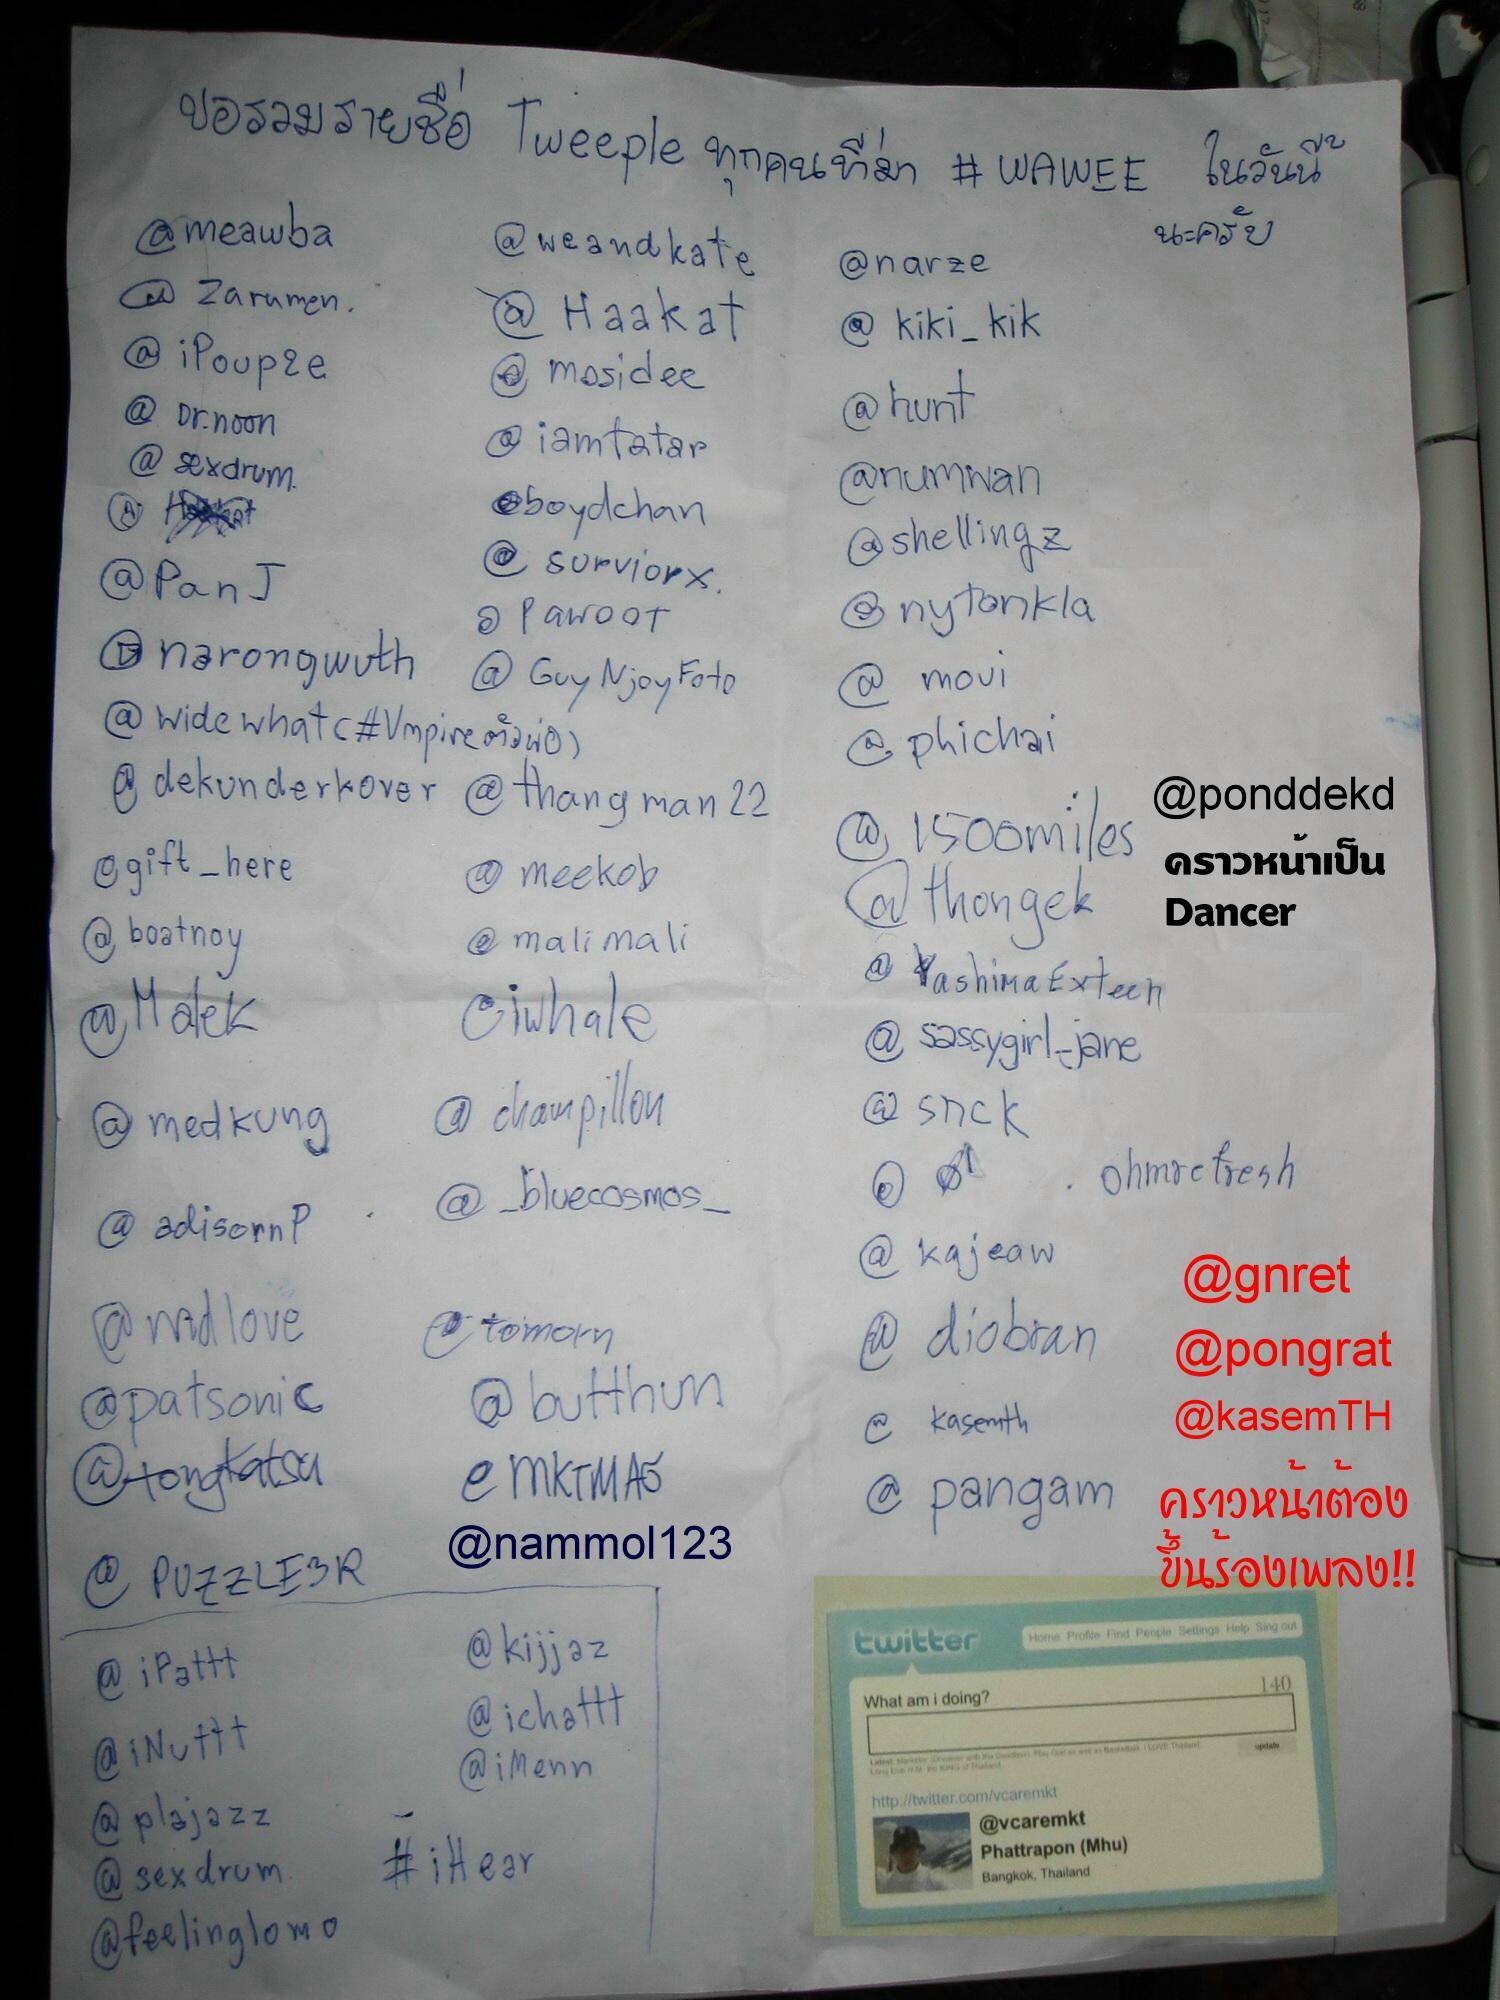 ขอรวมรายชื่อ Tweeple ทุกคนที่มา #WAWEE ในวันนี้
นะครับ
@meawba
@ Zarumen.
@ iPoup2e
@ Dr.noon
@ sexdrum.
@PanJ
@narongwuth
@widewhatc#Vmpireตัวพ่อ)
@ dekunderkover
@gift_here
@boatnoy
@Malek
@ medkung
@ adisornP
@nadlove
@patsonic
@tongkatsu
@ PUZZLE3R
@weandkate
@ Haakat
@ mosidee
@ iamtatar
@boydchan
@ surviorx.
@ Pawoot
@ GuyNjoyFoto
@thangman22
@ meekob
@ malimali
@iwhale
@ champillon
@ _bluecosmos_
@tomorn
@butthun
@MKTMAG
@nammol123
@narze
@ kiki_kik
@hunt
@numwan
@shellingz
@nytonkla
@ movi
@ phichai
@ 1500miles
@thongek
@ YashimaExteen
@ sassygirl_jane
@ snck
@ . ohmrefresh
@ kajeaw
@ diobran
@ kasemth
@ pangam
@ponddekd
คราวหน้าเป็น
Dancer
@gnret
@pongrat
@kasemTH
คราวหน้าต้อง
ขึ้นร้องเพลง!!
@ iPattt
@iNuttt
@plajazz
@sexdrum
@feelinglomo
@kijjaz
@ichattt
@iMenn
#iHear
twitter
Home Profile Find People Settings Help Sing out
What am i doing?
140
update
http://twitter.com/vcaremkt
@vcaremkt
Phattrapon (Mhu)
Bangkok, Thailand